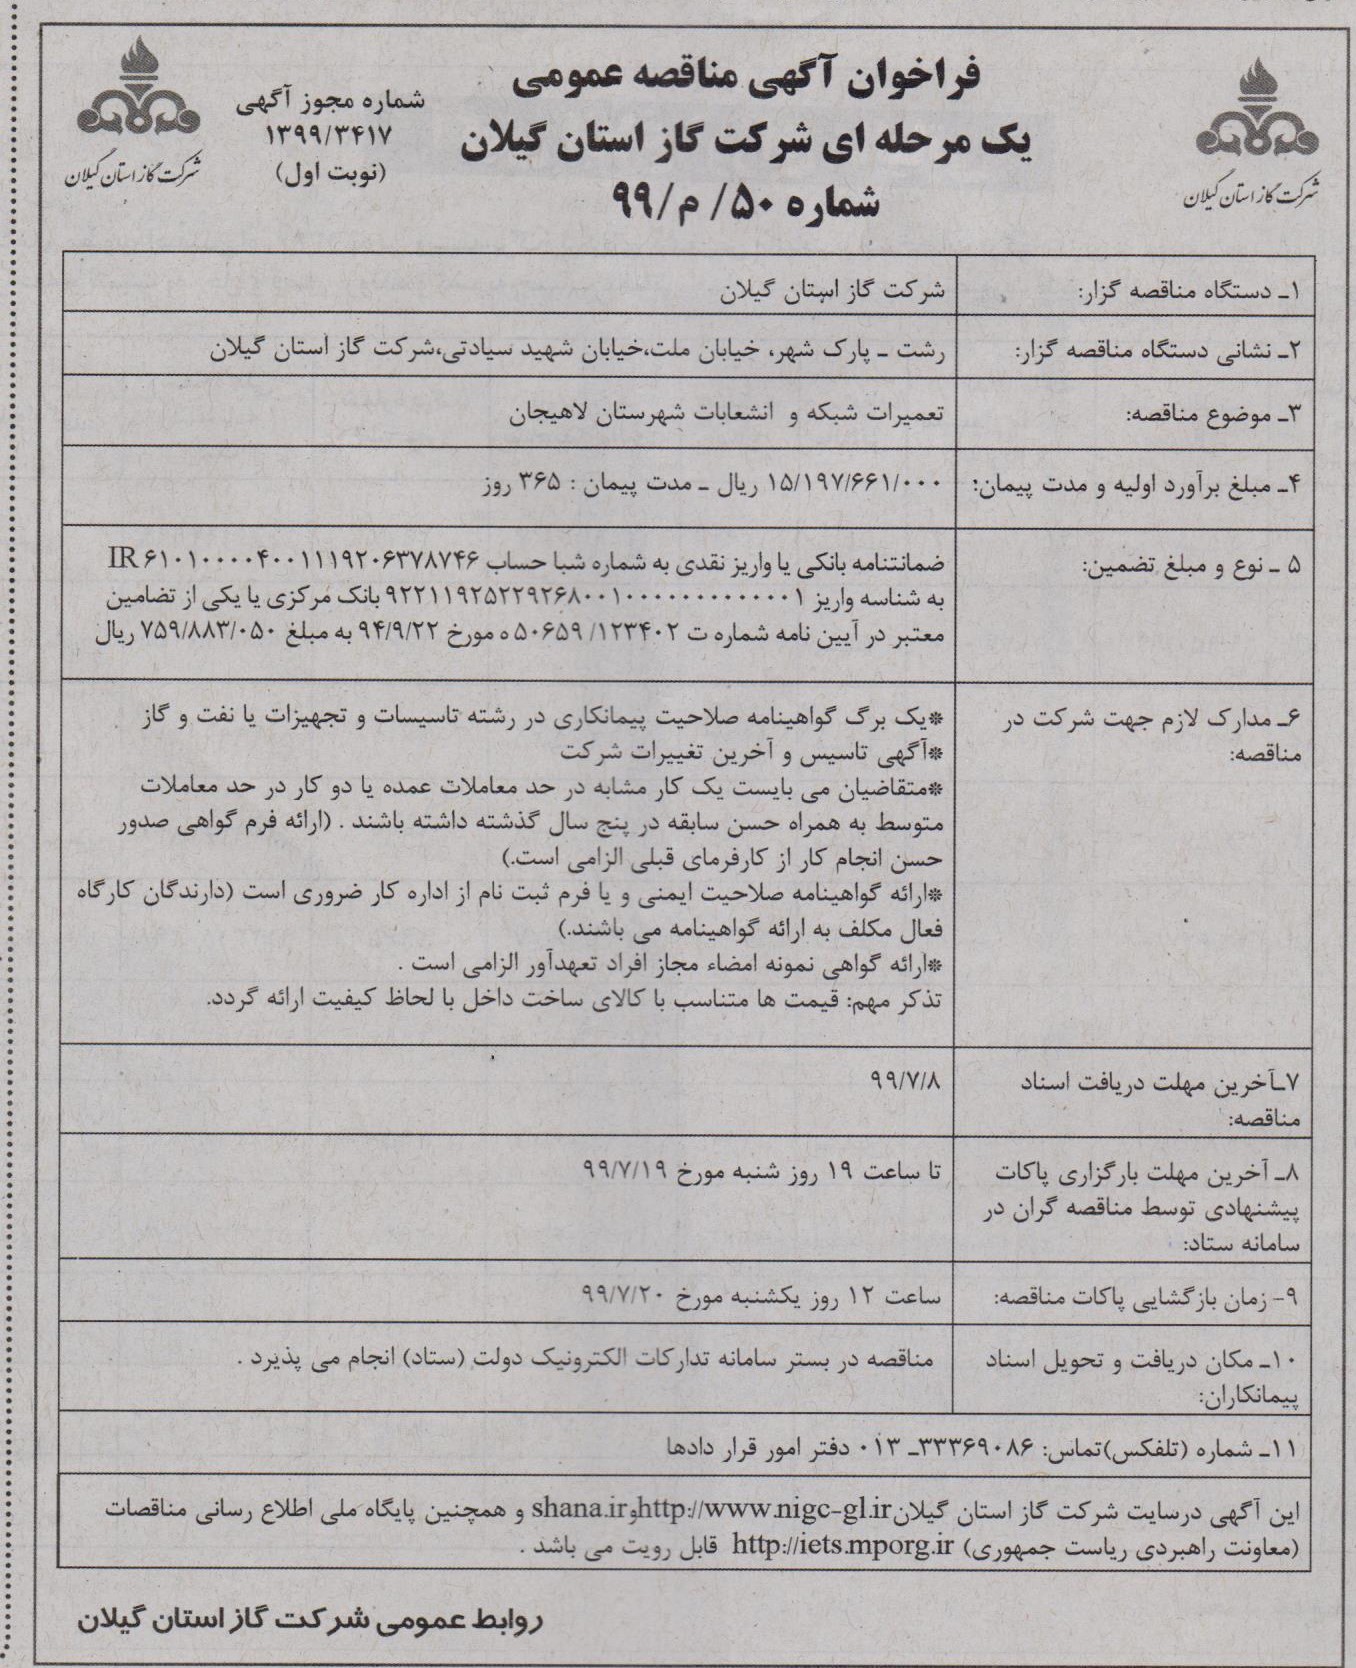 فراخوان آگهی مناقصه عمومی
یک مرحله ای شرکت گاز استان گیلان
شماره ۵۰/ م/۹۹
شرکت گاز استان گیلان
شماره مجوز آگهی
۱۳۹۹/۳۴۱۷
(نوبت اول)
شرکت گاز استان گیلان
۱ـ دستگاه مناقصه گزار:
شرکت گاز استان گیلان
۲ـ نشانی دستگاه مناقصه گزار:
رشت ـ پارک شهر، خیابان ملت،خیابان شهید سیادتی،شرکت گاز استان گیلان
۳ـ موضوع مناقصه:
تعمیرات شبکه و انشعابات شهرستان لاهیجان
۴ـ مبلغ برآورد اولیه و مدت پیمان:
۱۵/۱۹۷/۶۶۱/۰۰۰ ریال ـ مدت پیمان : ۳۶۵ روز
۵ ـ نوع و مبلغ تضمین:
ضمانتنامه بانکی یا واریز نقدی به شماره شبا حساب IR ۶۱۰۱۰۰۰۰۴۰۰۱۱۱۹۲۰۶۳۷۸۷۴۶
به شناسه واریز ۹۲۲۱۱۹۲۵۲۲۹۲۶۸۰۰۱۰۰۰۰۰۰۰۰۰۰۰۰۱ بانک مرکزی یا یکی از تضامین
معتبر در آیین نامه شماره ت ۱۲۳۴۰۲/ ۵۰۶۵۹ ه مورخ ۹۴/۹/۲۲ به مبلغ ۷۵۹/۸۸۳/۰۵۰ ریال
۶ـ مدارک لازم جهت شرکت در
مناقصه:
*یک برگ گواهینامه صلاحیت پیمانکاری در رشته تاسیسات و تجهیزات یا نفت و گاز
*آگهی تاسیس و آخرین تغییرات شرکت
*متقاضیان می بایست یک کار مشابه در حد معاملات عمده یا دو کار در حد معاملات
متوسط به همراه حسن سابقه در پنج سال گذشته داشته باشند . (ارائه فرم گواهی صدور
حسن انجام کار از کارفرمای قبلی الزامی است.)
*ارائه گواهینامه صلاحیت ایمنی و یا فرم ثبت نام از اداره کار ضروری است (دارندگان کارگاه
فعال مکلف به ارائه گواهینامه می باشند.)
*ارائه گواهی نمونه امضاء مجاز افراد تعهدآور الزامی است .
تذکر مهم: قیمت ها متناسب با کالای ساخت داخل با لحاظ کیفیت ارائه گردد.
۷ـآخرین مهلت دریافت اسناد
مناقصه:
۹۹/۷/۸
۸ـ آخرین مهلت بارگزاری پاکات
پیشنهادی توسط مناقصه گران در
سامانه ستاد:
تا ساعت ۱۹ روز شنبه مورخ ۹۹/۷/۱۹
۹- زمان بازگشایی پاکات مناقصه:
ساعت ۱۲ روز یکشنبه مورخ ۹۹/۷/۲۰
۱۰ـ مکان دریافت و تحویل اسناد
پیمانکاران:
مناقصه در بستر سامانه تدارکات الکترونیک دولت (ستاد) انجام می پذیرد .
۱۱ـ شماره (تلفکس)تماس: ۳۳۳۶۹۰۸۶ـ ۰۱۳ دفتر امور قرار دادها
این آگهی درسایت شرکت گاز استان گیلانhttp://www.nigc-gl.irوshana.ir و همچنین پایگاه ملی اطلاع رسانی مناقصات
(معاونت راهبردی ریاست جمهوری) http://iets.mporg.ir قابل رویت می باشد .
روابط عمومی شرکت گاز استان گیلان